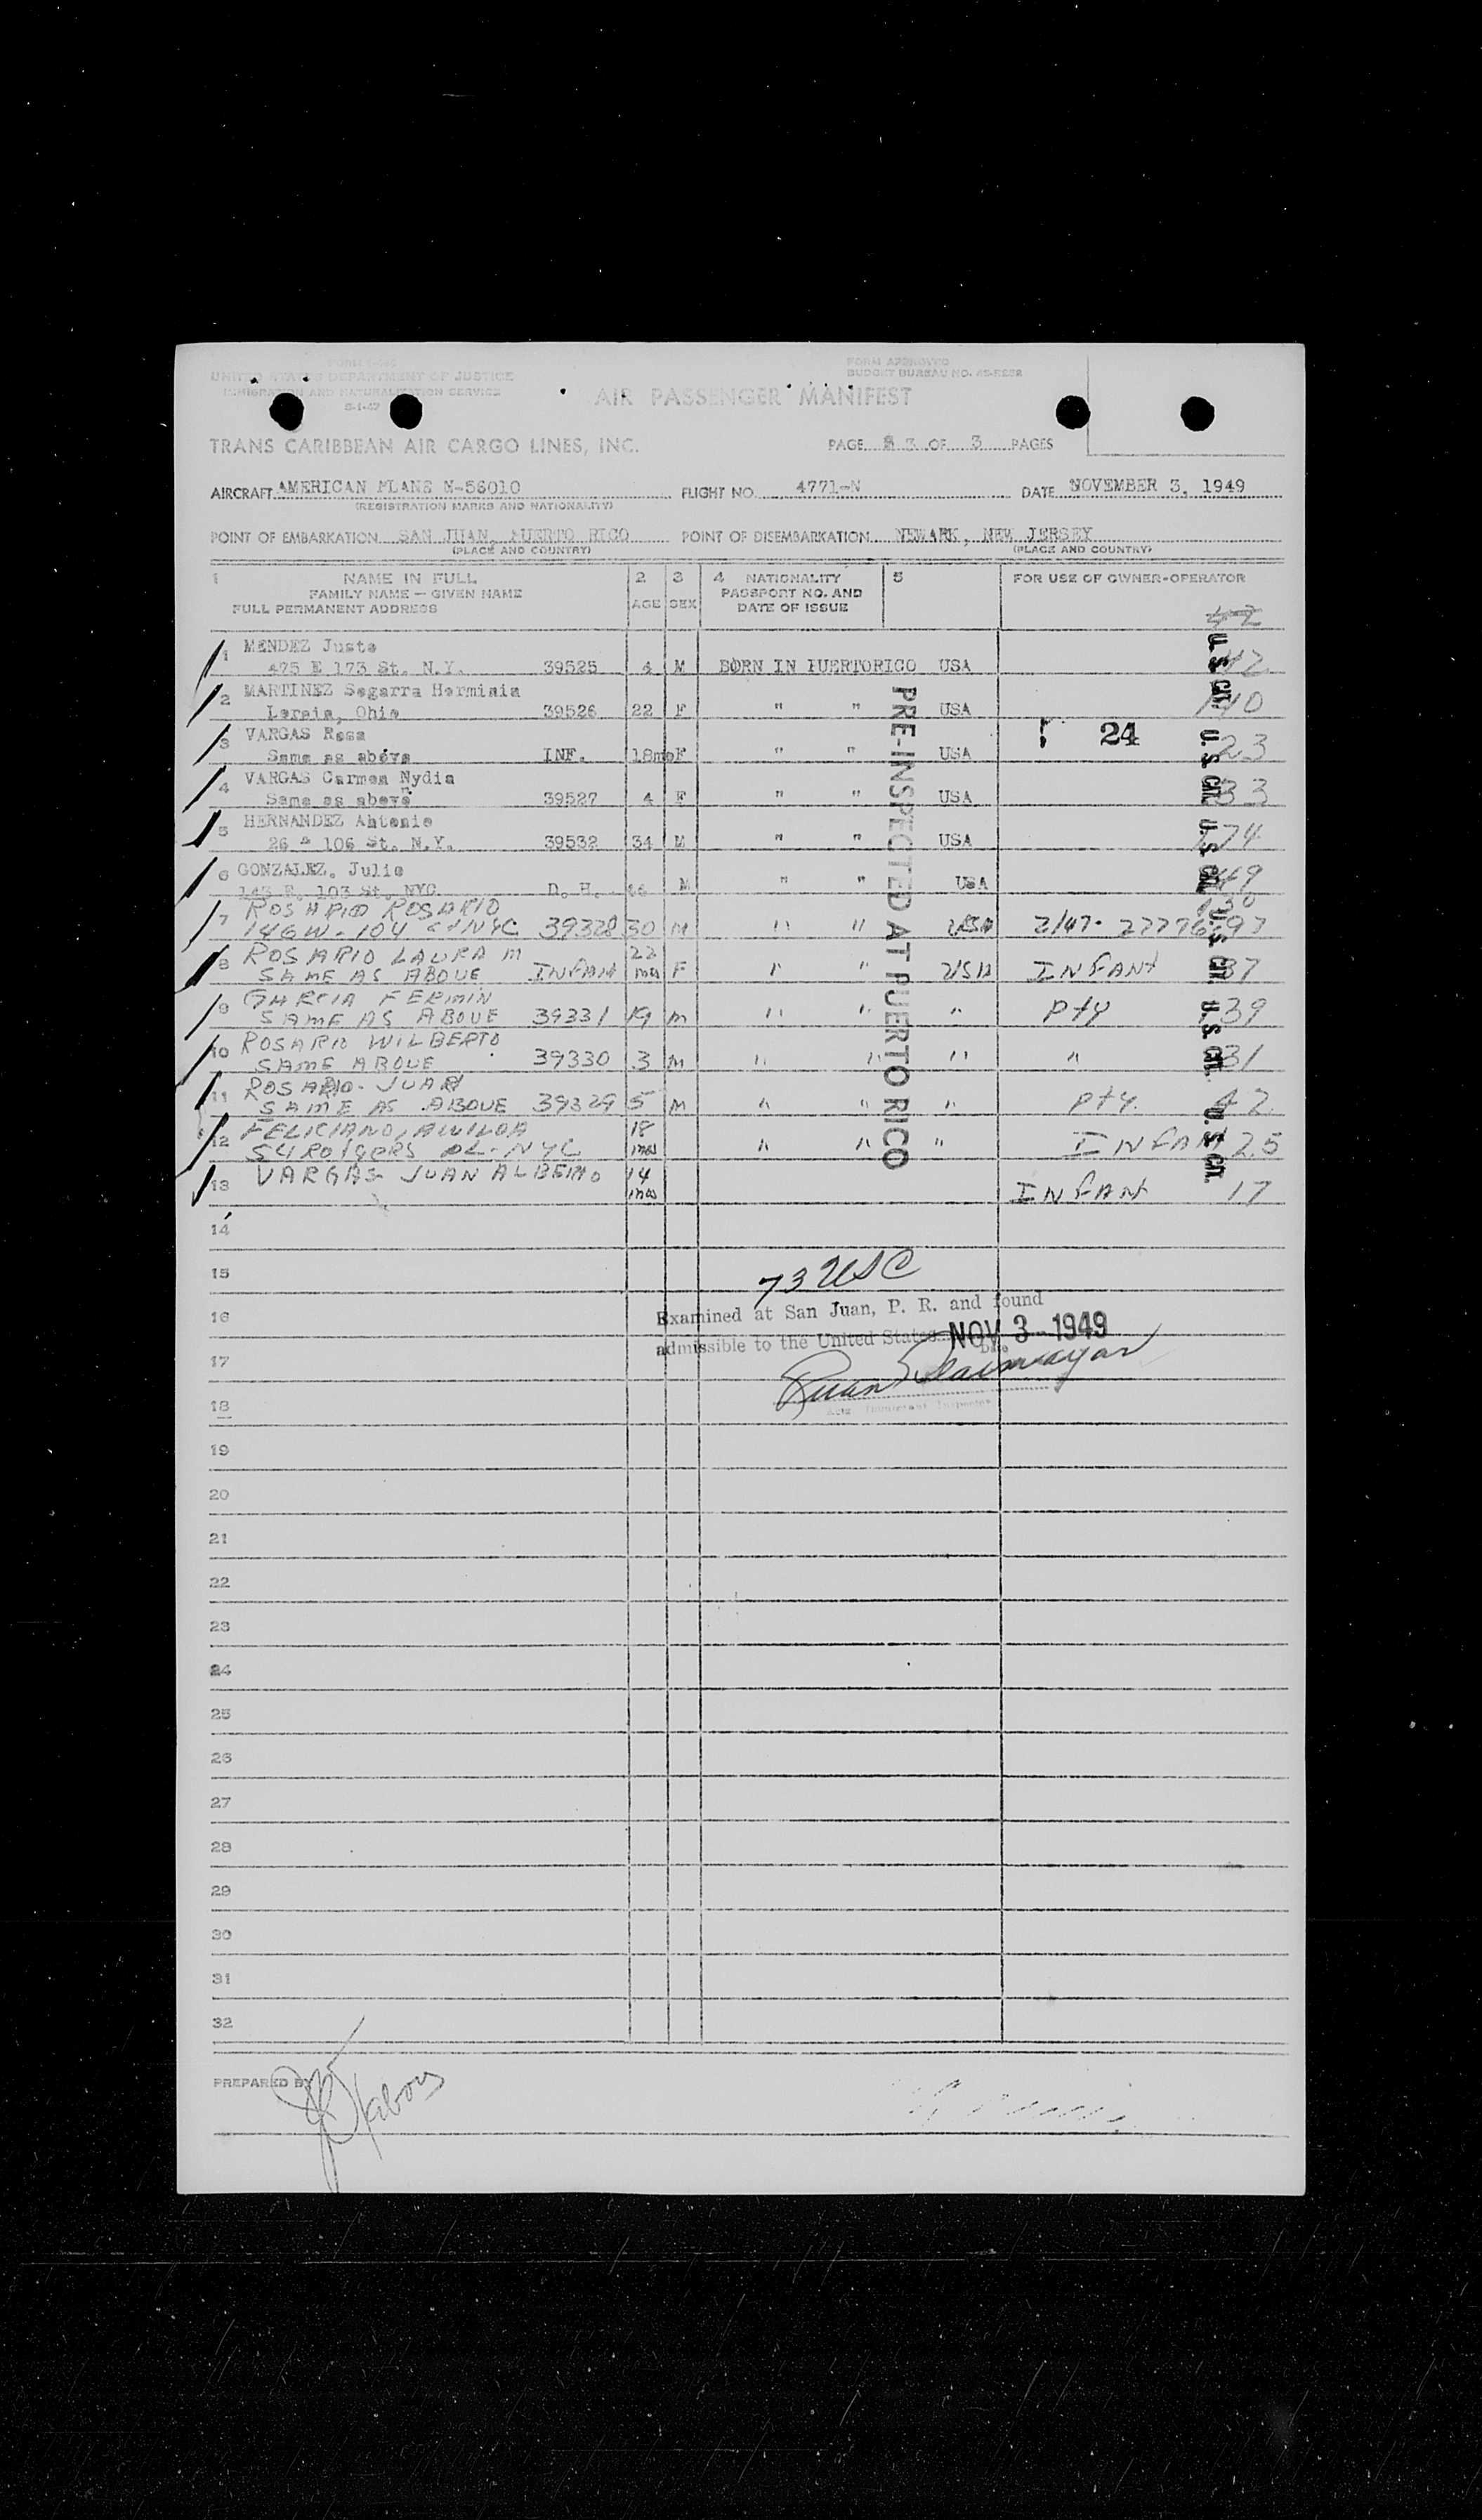 UNITED STATES DEPARTMENT OF JUSTICE
IMMIGRATION AND NATURALIZATION SERVICE
FORM APPROVED
BUDGET BUREAU NO.
AIR PASSENGER MANIFEST
TRANS CARIBBEAN AIR CARGO LINES, INC.
PAGE 3 OF 3 PAGES
AIRCRAFT AMERICAN PLANE N-56010 FLIGHT NO. 4771-N DATE NOVEMBER 3, 1949
(REGISTRATION MARKS AND NATIONALITY)
POINT OF EMBARKATION SAN JUAN, PUERTO RICO POINT OF DISEMBARKATION NEWARK, NEW JERSEY
(PLACE AND COUNTRY) (PLACE AND COUNTRY)
1 NAME IN FULL 2 3 4 NATIONALITY 5 FOR USE OF OWNER-OPERATOR
FAMILY NAME — GIVEN NAME AGE SEX PASSPORT NO. AND
FULL PERMANENT ADDRESS DATE OF ISSUE
42
1 MENDEZ Juste
475 E 173 St. N.Y. 39525 4 M BORN IN PUERTORICO USA 42
2 MARTINEZ Segarra Herminia
Lorain, Ohio 39526 22 F " " USA 140
3 VARGAS Rosa 24
Same as above INF. 18mo F " " USA 23
4 VARGAS Carmen Nydia
Same as above 39527 4 F " " USA 33
5 HERNANDEZ Antonio
26 106 St. N.Y. 39532 34 M " " USA 174
6 GONZALEZ, Julio
143 E. 103 St. NYC D. H. M " " USA 149
7 ROSARIO ROSARIO 130
146 W. 104 St NYC 39328 30 M " " USA
8 ROSARIO LAURA M 22
SAME AS ABOVE INFANT mos F " " USA INFANT 37
9 GARCIA FERMIN
SAME AS ABOVE 39331 19 M " " " Pty 39
10 ROSARIO WILBERTO
SAME ABOVE 39330 3 M " " " " 31
11 ROSARIO - JUAN
SAME AS ABOVE 39329 5 M " " " Pty. 42
12 FELICIANO, AWILDA 18
54 Rodgers PL - NYC mos " " " INFANT 25
13 VARGAS JUAN ALBERTO 14
mos INFANT 17
PRE-INSPECTED AT PUERTO RICO
U. S. CIT. U. S. CIT. U. S. CIT. U. S. CIT. U. S. CIT. U. S. CIT.
14
15
73 USC
16
Examined at San Juan, P. R. and found
admissible to the United States NOV 3 - 1949
Date
17
Immigrant Inspector
18
19
20
21
22
23
24
25
26
27
28
29
30
31
32
PREPARED BY